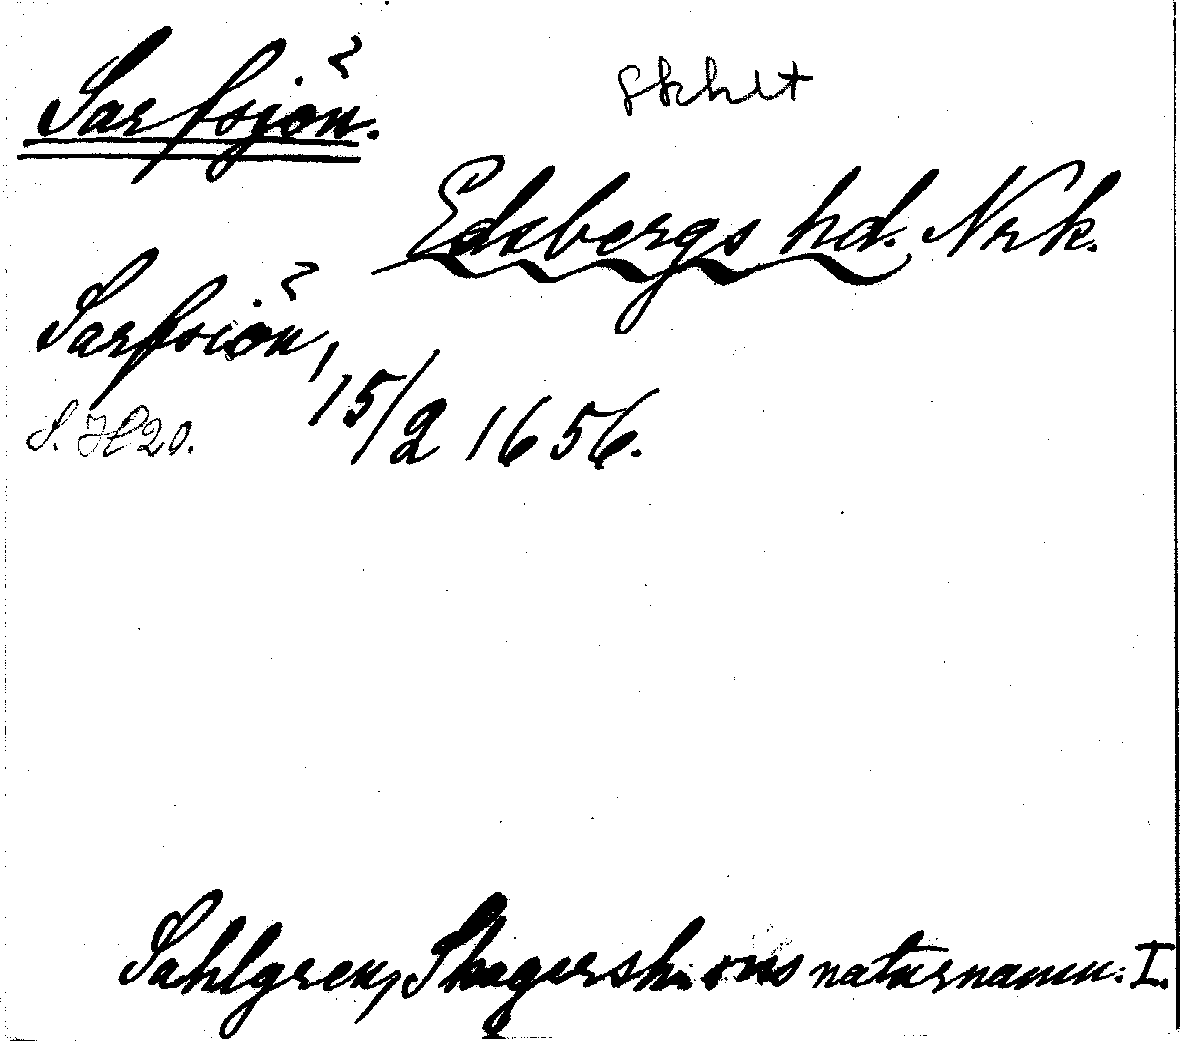 Sarfsjön.
Skhlt
Edsbergs hd. Nrk.
Sarfsiön,
15/2 1656.
S. H 20.
Sahlgren, Skagersh. os naturnamn. I.